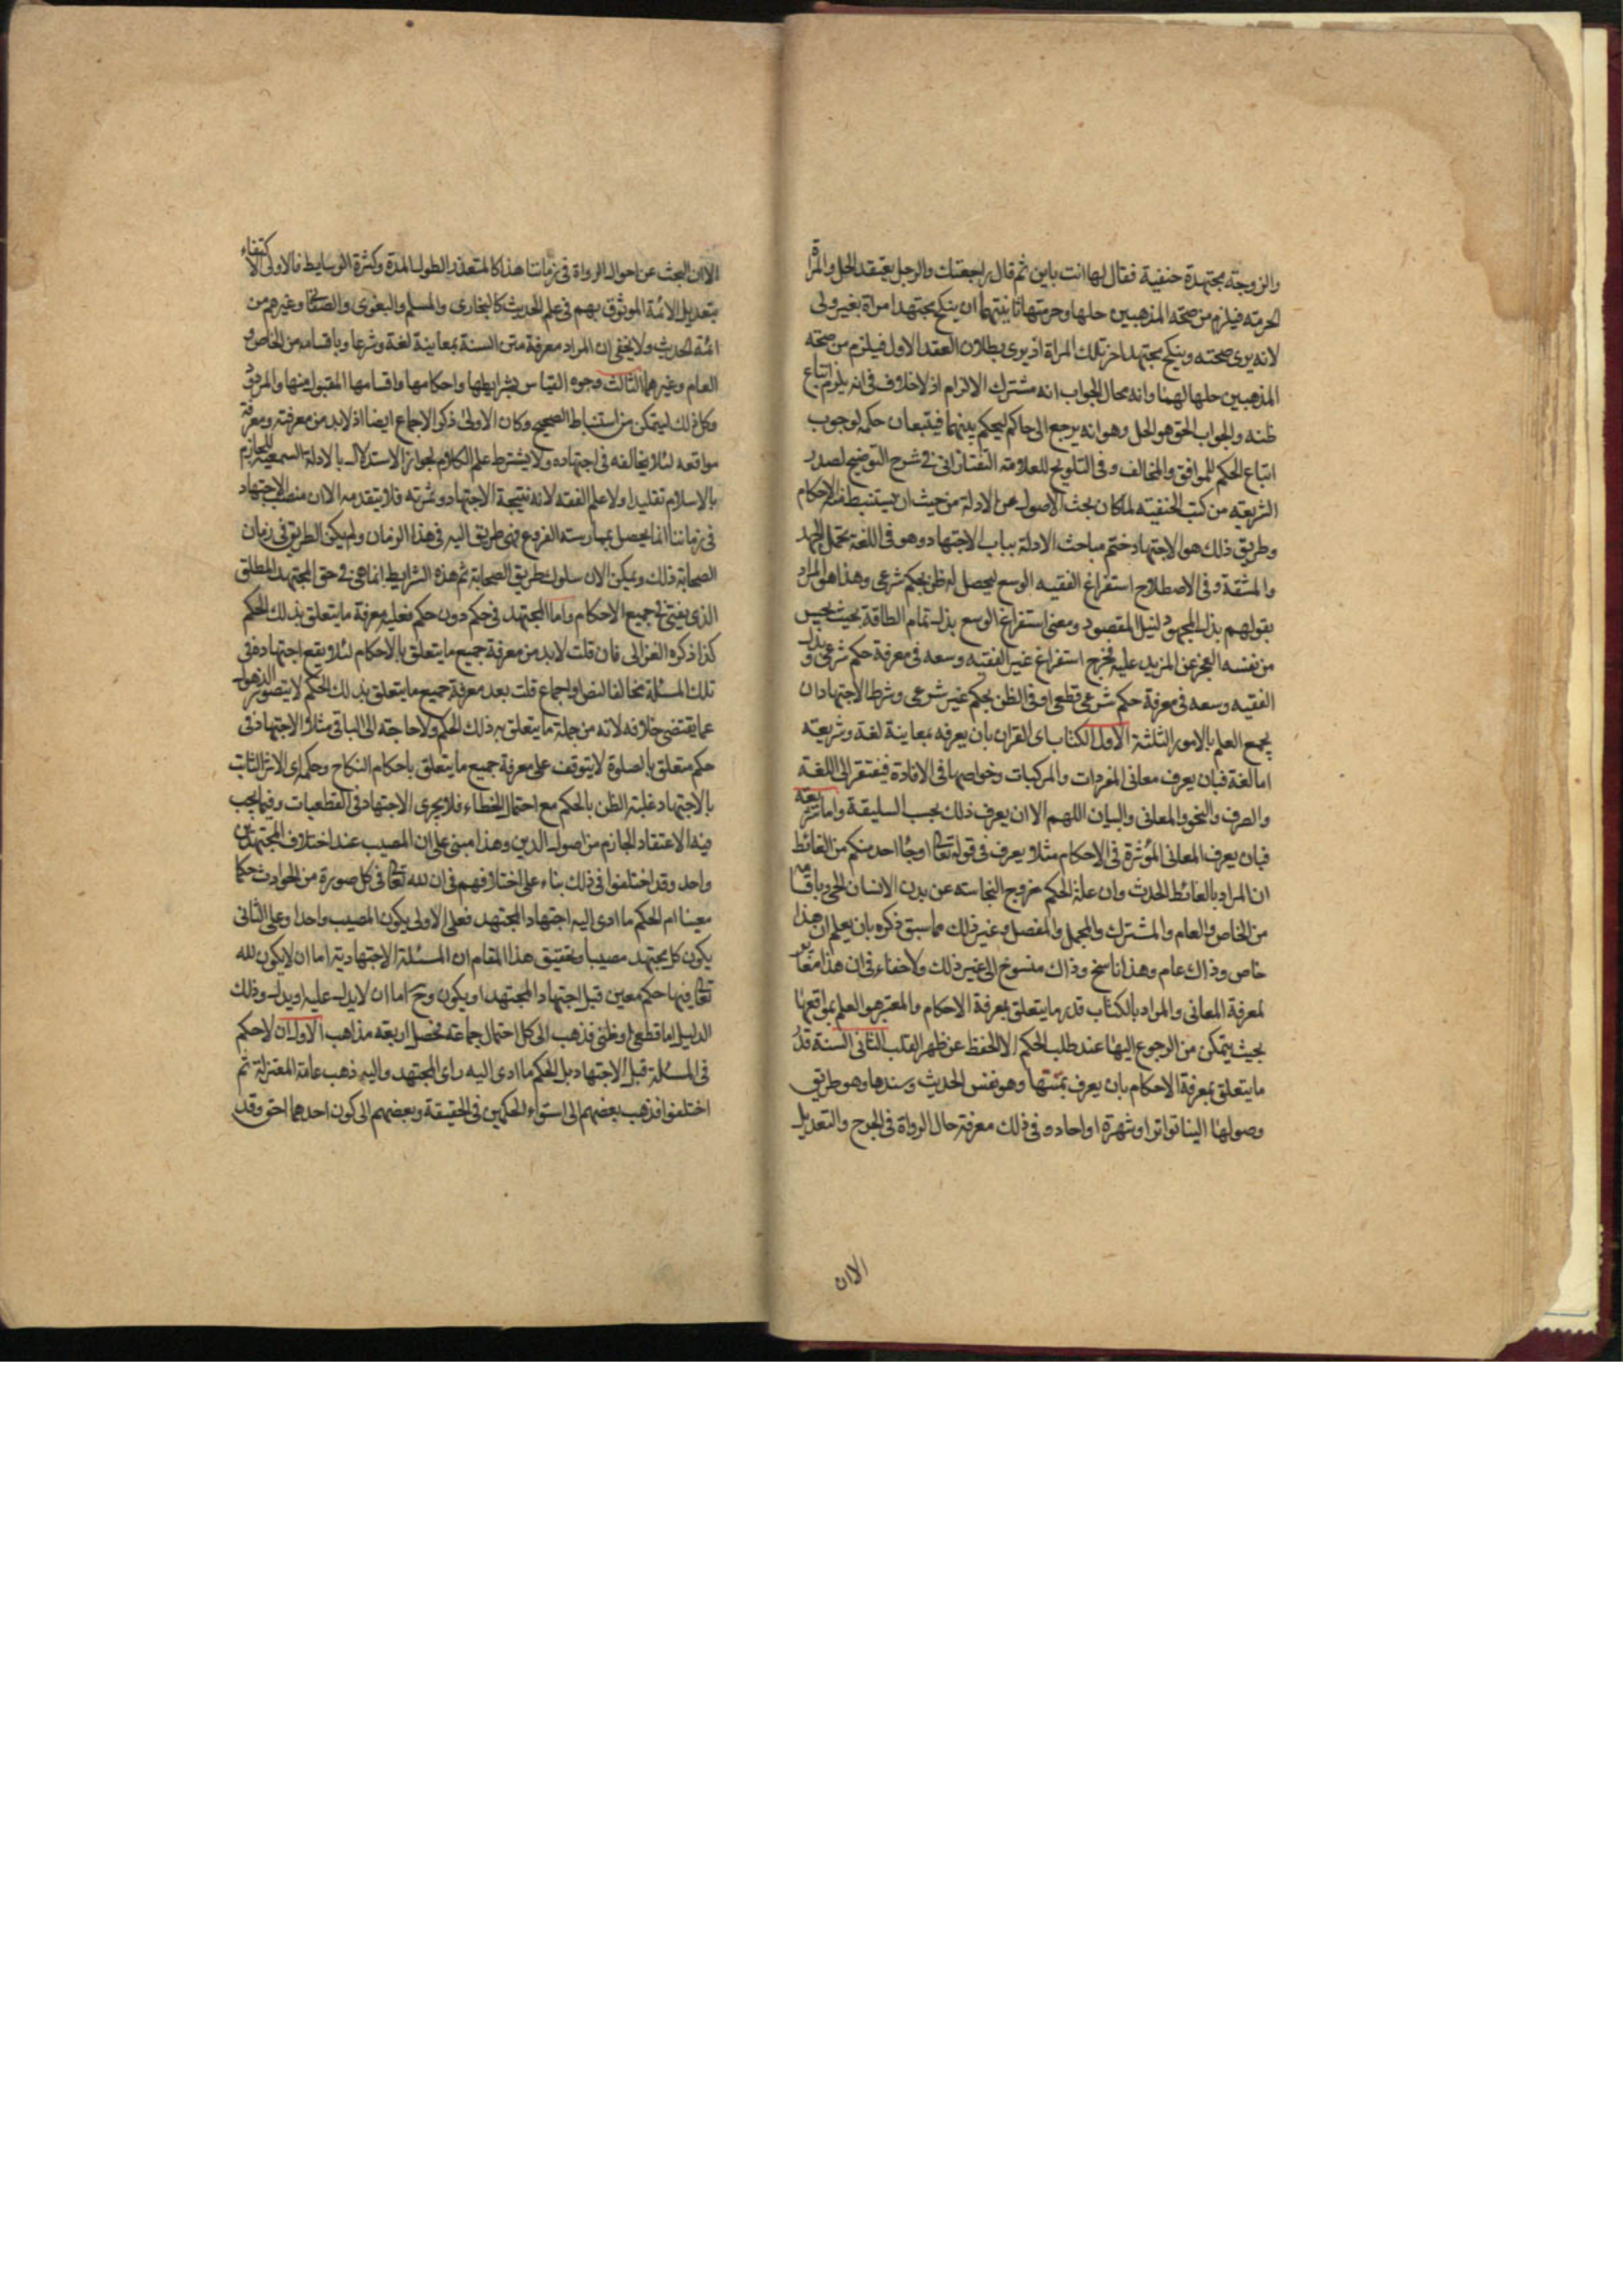 والزوجته مجتهدة حنفية فقال لها انت باين ثم قال راجعتك والرجل يعتقد الحل والمراة
الحرمته فيلزم من صحته المذهبين حلها وحرمتها ثانيتهما ان ينكح مجتهد امراة بغير ولى
لانه يرى صحته وينكح مجتهد اخر تلك المراة اذ يرى بطلان العقد الاول فيلزم من صحته
المذهبين حلها لهما وانه محال الجواب انه مشترك الالزام اذ لاخلاف فى انه يلزم اتباع
ظنه والجواب الحق هو الحل وهو انه يرجع الى حاكم ليحكم بينهما فيتبعان حكمه لوجوب
اتباع الحكم للموافق والمخالف وفى التلويح للعلامته التفتازانى فى شرح التوضيح لصدر
الشريعته من كتب الحنفيته لما كان بحث الاصول عن الادلة من حيث ان يستنبط منها الاحكام
وطريق ذلك هو الاجتهاد ختم مباحث الادلة بباب الاجتهاد وهو فى اللغة تحمل الجهد
والمشقة وفى الاصطلاح استفراغ الفقيه الوسع ليحصل له ظن بحكم شرعى وهذا هو المراد
بقولهم بذل المجهود لنيل المقصود ومعنى استفراغ الوسع بذل تمام الطاقة بحيث يحس
من نفسه العجز عن المزيد عليه فخرج استفراغ غير الفقيه وسعه فى معرفة حكم شرعى وبذل
الفقيه وسعه فى معرفة حكم شرعى قطعى او فى الظن بحكم غير شرعى وشرط الاجتهاد ان
يجمع العلم بالامور الثلثة الاول الكتاب اى القران بان يعرفه بمعاينة لغة وشريعته
اما لغة فبان يعرف معانى المفردات والمركبات وخواصها فى الافادة فيفتقر الى اللغة
والصرف والنحو والمعانى والبيان اللهم الا ان يعرف ذلك بحسب السليقة واما شريعته
فبان يعرف المعانى المؤثرة فى الاحكام مثلا يعرف فى قوله تعالى او جاء احد منكم من الغائط
ان المراد بالغائط الحدث وان علة الحكم خروج النجاسته عن بدن الانسان الحى وباقسامه
من الخاص والعام والمشترك والمجمل والمفصل وغير ذلك مما سبق ذكره بان يعلم ان هذا
خاص وذاك عام وهذا ناسخ وذاك منسوخ الى غير ذلك ولاخفاء فى ان هذا مغاير
لمعرفة المعانى والمراد بالكتاب قدر ما يتعلق بمعرفة الاحكام والمعتبر هو العلم بمواقعها
بحيث يتمكن من الرجوع اليها عند طلب الحكم لا الحفظ عن ظهر القلب الثانى السنة قدر
ما يتعلق بمعرفة الاحكام بان يعرف بمتنها وهو نفس الحديث وسندها وهو طريق
وصولها الينا تواترا او شهرة او احاد وفى ذلك معرفة حال الرواة فى الجرح والتعديل
الا ان
الا ان البحث عن احوال الرواة فى زماننا هذا كالمتعذر الطول المدة وكثرة الوسايط فالاولى الاكتفاء
بتعديل الائمة الموثوق بهم فى علم الحديث كالبخارى والمسلم والبغوى والصغانى وغيرهم من
ائمة الحديث ولا يخفى ان المراد معرفة متن السنة بمعاينة لغة وشرعا وباقسامه من الخاص و
العام وغيرهما الثالث وجوه القياس بشرايطها واحكامها واقسامها المقبول منها والمردود
وكل ذلك ليتمكن من استنباط الصحيح وكان الاولى ذكر الاجماع ايضا اذ لابد من معرفته ومعرفة
مواقعه لئلا يخالفه فى اجتهاده ولا يشترط علم الكلام لجواز الاستدلال بالادلة السمعية للجازم
بالاسلام تقليدا ولا علم الفقه لانه نتيجة الاجتهاد وثمرته فلا يتقدمه الا ان منصب الاجتهاد
فى زماننا انما يحصل بممارسته الفروع فهى طريق اليه فى هذا الزمان ولم يكن الطريق فى زمان
الصحابة ذلك ويمكن الان سلوك طريق الصحابة ثم هذه الشرايط انما هى فى حق المجتهد المطلق
الذى يفتى فى جميع الاحكام واما المجتهد فى حكم دون حكم فعليه معرفة ما يتعلق بذلك الحكم
كذا ذكره الغزالى فان قلت لابد من معرفة جميع ما يتعلق بالاحكام لئلا يقع اجتهاده فى
تلك المسئلة مخالفا لنص او اجماع قلت بعد معرفة جميع ما يتعلق بذلك الحكم لا يتصور الذهول
عما يقتضى خلافه لانه من جملة ما يتعلق به ذلك الحكم ولا حاجته الى الباقى مثلا الاجتهاد فى
حكم متعلق بالصلوة لا يتوقف على معرفة جميع ما يتعلق باحكام النكاح وحكمه اى الاثر الثابت
بالاجتهاد غلبته الظن بالحكم مع احتمال الخطاء فلا يجرى الاجتهاد فى القطعيات وفيما يجب
فيه الاعتقاد الجازم من اصول الدين وهذا مبنى على ان المصيب عند اختلاف المجتهدين
واحد وقد اختلفوا فى ذلك بناء على اختلافهم فى ان لله تعالى فى كل صورة من الحوادث حكما
معينا ام الحكم ما ادى اليه اجتهاد المجتهد فعلى الاولى يكون المصيب واحدا وعلى الثانى
يكون كل مجتهد مصيبا وتحقيق هذا المقام ان المسئلة الاجتهادية اما ان لا يكون لله
تعالى فيها حكم معين قبل اجتهاد المجتهد او يكون وح اما ان لا يدل عليه او يدل وذلك
الدليل اما قطعى او ظنى فذهب الى كل احتمال جماعته فحصل اربعته مذاهب الاول ان لا حكم
فى المسئلة قبل الاجتهاد بل الحكم ما ادى اليه راى المجتهد واليه ذهب عامة المعتزلة ثم
اختلفوا فذهب بعضهم الى استواء الحكمين فى الحقيقة وبعضهم الى كون احدهما احق وقد